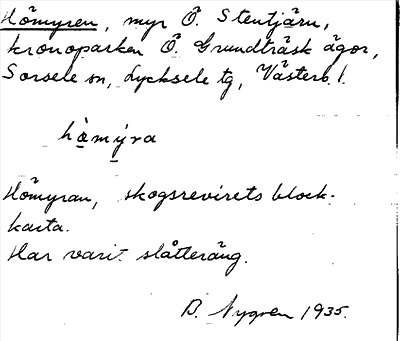 Hömyren, myr Ö. Stentjärn,
kronoparken Ö. Grundträsk ägor,
Sorsele sn, Lycksele tg, Västerb. l.
hà̤mý̠ra
Hömyran, skogsrevirets block-
karta.
Har varit slåtteräng.
B. Nygren 1935.